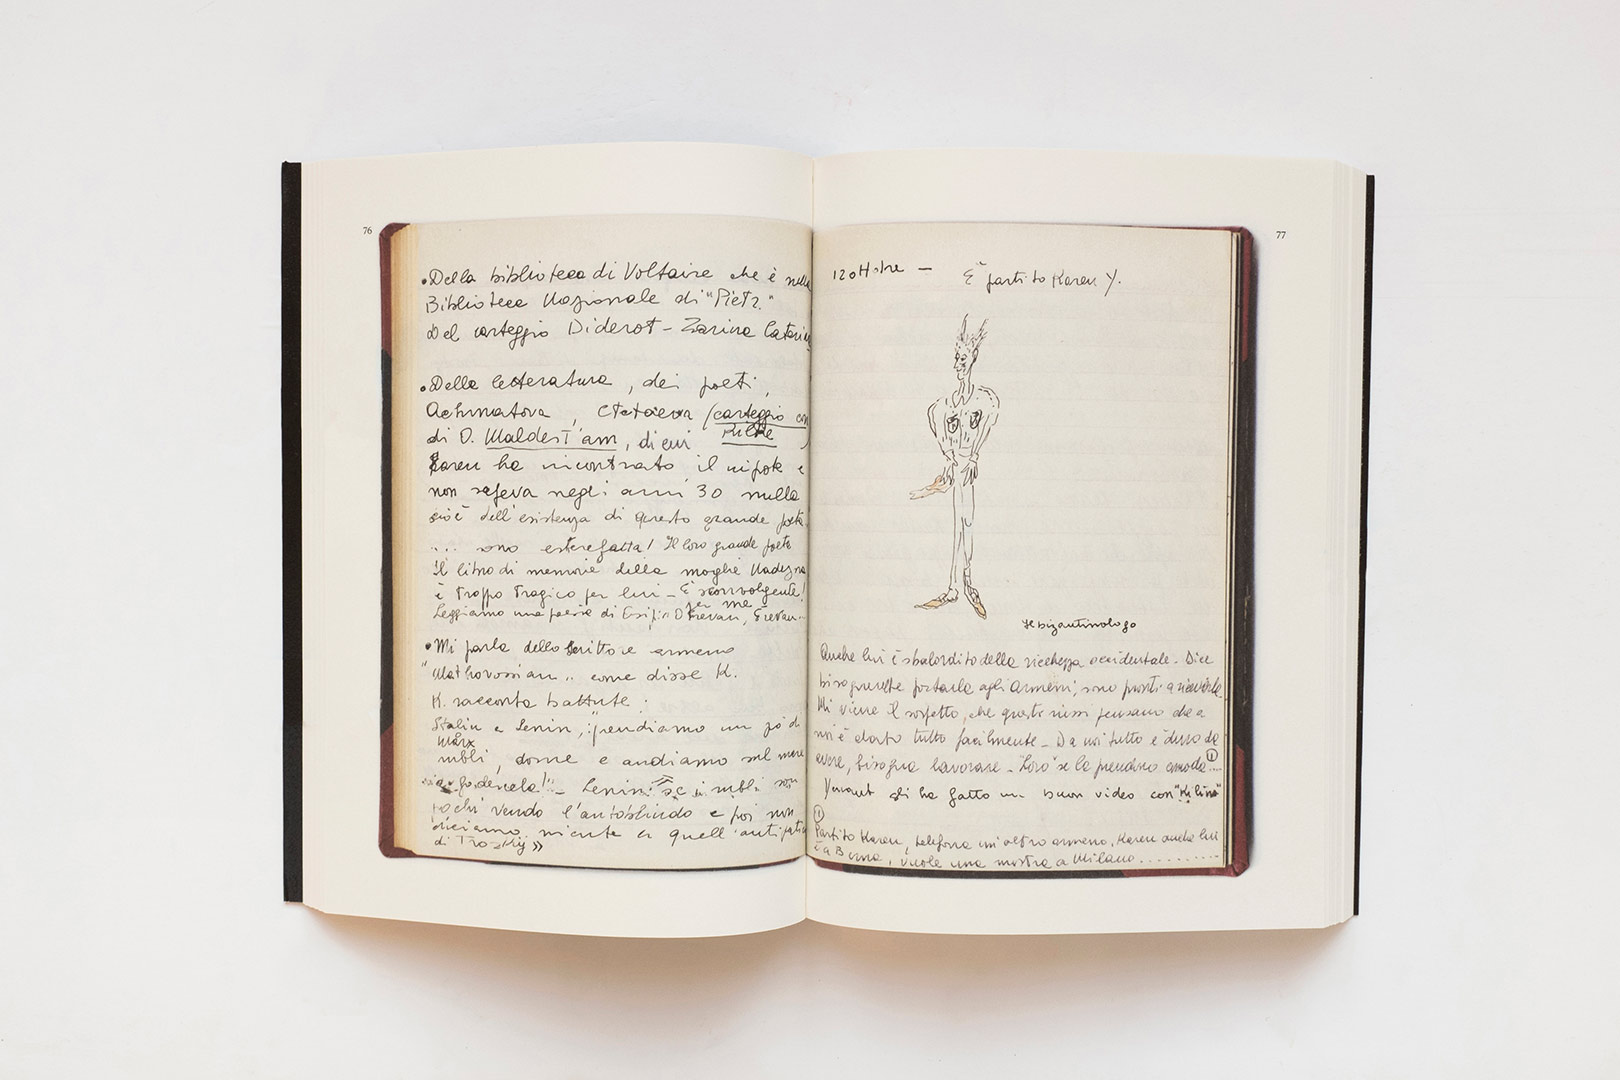 76
•Della biblioteca di Voltaire che è nella
Biblioteca Nazionale di "Pietr."
Del carteggio Diderot – Zarina Caterina
•Della letteratura, dei poeti,
Achmatova, (carteggio con
di O. Maldest'am, di cui Rilke
Karen ha incontrato il nipote e
non sapeva negli anni 30 nulla
cioè dell'esistenza di questo grande poeta
... sono esterefatta! Il loro grande poeta
Il libro di memorie della moglie Nadezna
è troppo tragico per lui – È sconvolgente!
per me
Leggiamo una poesia di
•Mi parla dello scrittore armeno
"Mathovossian" come disse K.
K. racconta battute:
Stalin e Lenin, "prendiamo un pò di
Marx
rubli, donne e andiamo sul mare
a godercela!" – Lenin: se i rubli son
pochi vendo l'autoblindo e poi non
diciamo niente a quell'antipatico
di Trozkij »
77
12 ottobre – È partito Karen Y.
Il bizantinologo
Anche lui è sbalordito della ricchezza occidentale. Dice
bisognerebbe portarla agli Armeni, sono pronti a riceverla.
Mi viene il sospetto, che questi russi pensano che a
noi è dato tutto facilmente – Da noi tutto è duro da
avere, bisogna lavorare – "Loro" se la prendono comoda (1)...
gli ha fatto un buon video con
(1)
Partito Karen, telefona un altro armeno, Karen anche lui
è a Berna, vuole una mostra a Milano..........